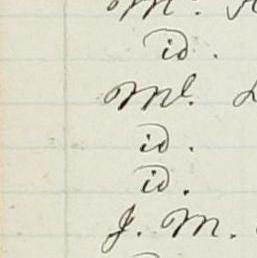 id.
Ml.
id.
id.
J. M.